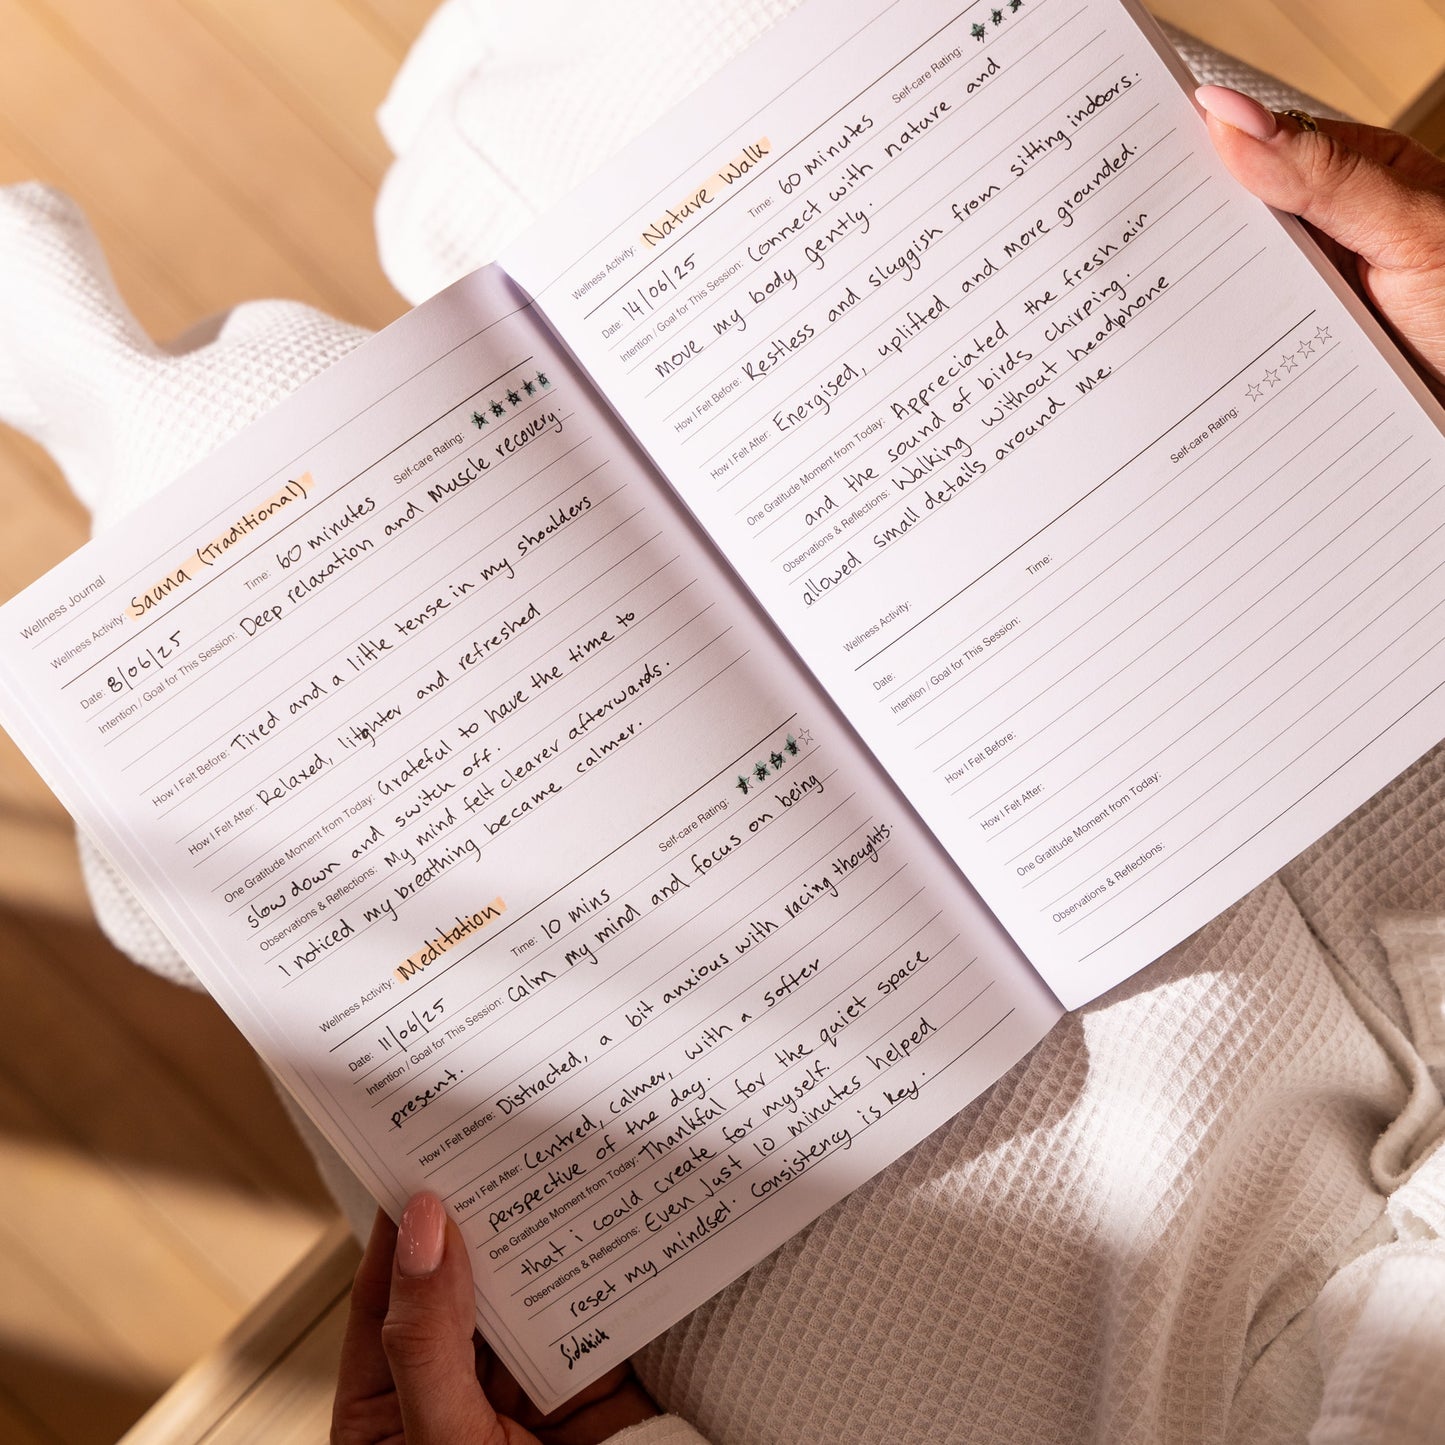 Wellness Journal
Wellness Activity: Sauna (Traditional)
Date: 8/06/25 Time: 60 minutes Self-care Rating:
Intention / Goal for This Session: Deep relaxation and muscle recovery.
How I Felt Before: Tired and a little tense in my shoulders
How I Felt After: Relaxed, lighter and refreshed
One Gratitude Moment from Today: Grateful to have the time to
slow down and switch off.
Observations & Reflections: My mind felt clearer afterwards.
I noticed my breathing became calmer.
Wellness Activity: Meditation
Date: 11/06/25 Time: 10 mins Self-care Rating:
Intention / Goal for This Session: Calm my mind and focus on being
present.
How I Felt Before: Distracted, a bit anxious with racing thoughts.
How I Felt After: Centred, calmer, with a softer
perspective of the day.
One Gratitude Moment from Today: Thankful for the quiet space
that i could create for myself.
Observations & Reflections: Even Just 10 minutes helped
reset my mindset. Consistency is key.
Wellness Activity: Nature Walk
Date: 14/06/25 Time: 60 minutes Self-care Rating:
Intention / Goal for This Session: Connect with nature and
move my body gently.
How I Felt Before: Restless and sluggish from sitting indoors.
How I Felt After: Energised, uplifted and more grounded.
One Gratitude Moment from Today: Appreciated the fresh air
and the sound of birds chirping.
Observations & Reflections: Walking without headphone
allowed small details around me.
Wellness Activity:
Date: Time: Self-care Rating:
Intention / Goal for This Session:
How I Felt Before:
How I Felt After:
One Gratitude Moment from Today:
Observations & Reflections: